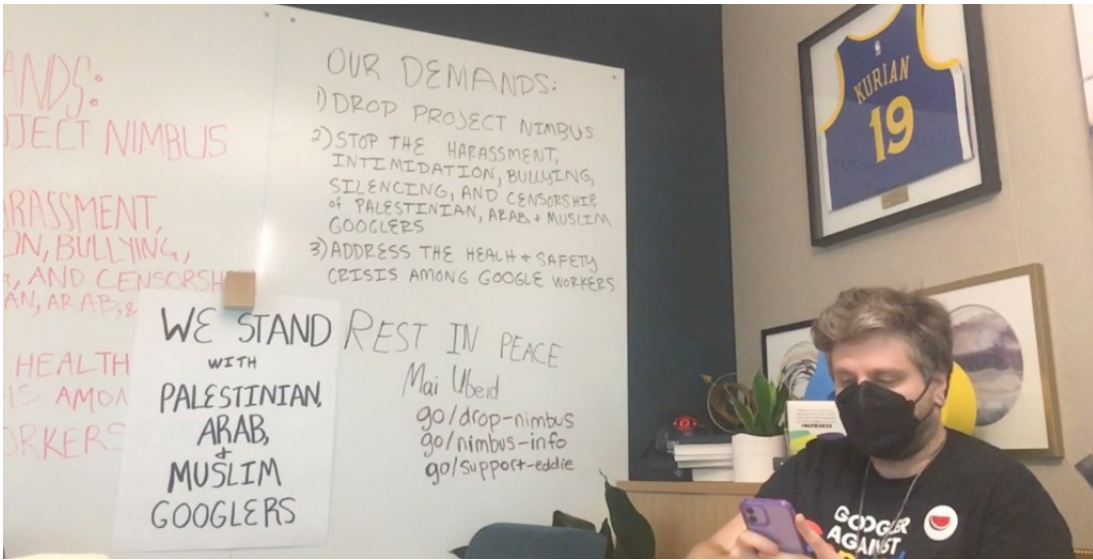 ANDS:
OJECT NIMBUS
ARASSMENT,
ON, BULLYING,
G, AND CENSORSH
AN, ARAB, &
HEALTH
IS AMON
ORKERS
WE STAND
WITH
PALESTINIAN,
ARAB,
+
MUSLIM
GOOGLERS
OUR DEMANDS:
1) DROP PROJECT NIMBUS
2) STOP THE HARASSMENT,
INTIMIDATION, BULLYING,
SILENCING, AND CENSORSHIP
of PALESTINIAN, ARAB, + MUSLIM
GOOGLERS
3) ADDRESS THE HEALH + SAFETY
CRISIS AMONG GOOGLE WORKERS
REST IN PEACE
Mai Ubeid
go/drop-nimbus
go/nimbus-info
go/support-eddie
KURIAN
19
GOOGLER
AGAINST